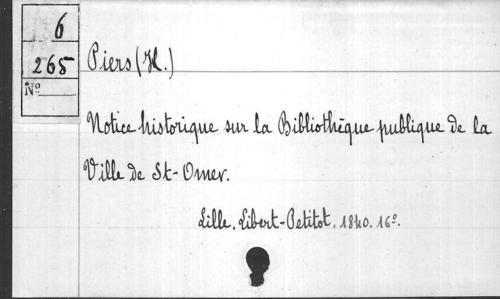 6
265
Nº
Piers (H.)
Notice historique sur la Bibliothèque publique de la
Ville de St-Omer.
Lille, Libert-Petitot, 1840. 16º.